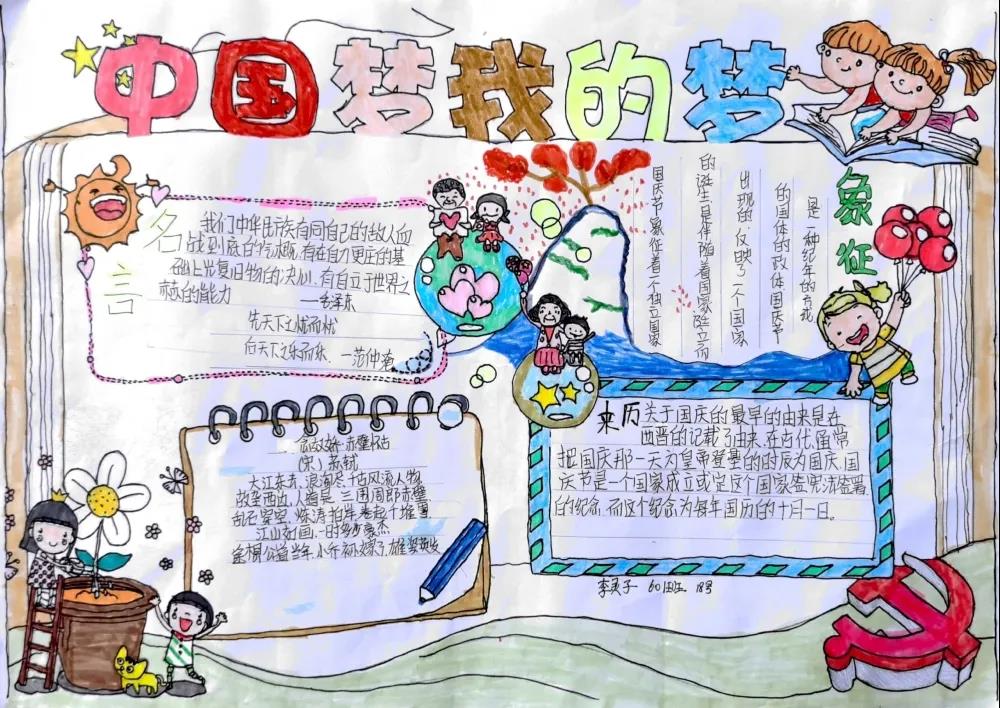 中国梦我的梦
名言
我们中华民族有同自己的敌人血
战到底的气概,有在自力更正的基
础上光复旧物的决心,有自立于世界之
林的能力
——毛泽东
先天下之忧而忧
后天下之乐而乐 —范仲淹
象征
是一种纪年的方式
的国体的政体国庆节
出现的,反映了一个国家
的诞生是伴随着国家独立而
国庆节象征着一个独立国家
念奴娇·赤壁怀古
(宋)苏轼
大江东去,浪淘尽,千古风流人物
故垒西边,人道是,三国周郎赤壁
乱石穿空,惊涛拍岸,卷起千堆雪
江山如画,一时多少豪杰
公瑾当年,小乔初嫁了,雄姿英发
来历
关于国庆的最早的由来是在
西晋的记载了由来,在古代,通常
把国庆那一天为皇帝登基的时辰为国庆,国
庆节是一个国家成立或定这个国家签宪法签署
的纪念,而这个纪念为每年国历的十月一日。
18号